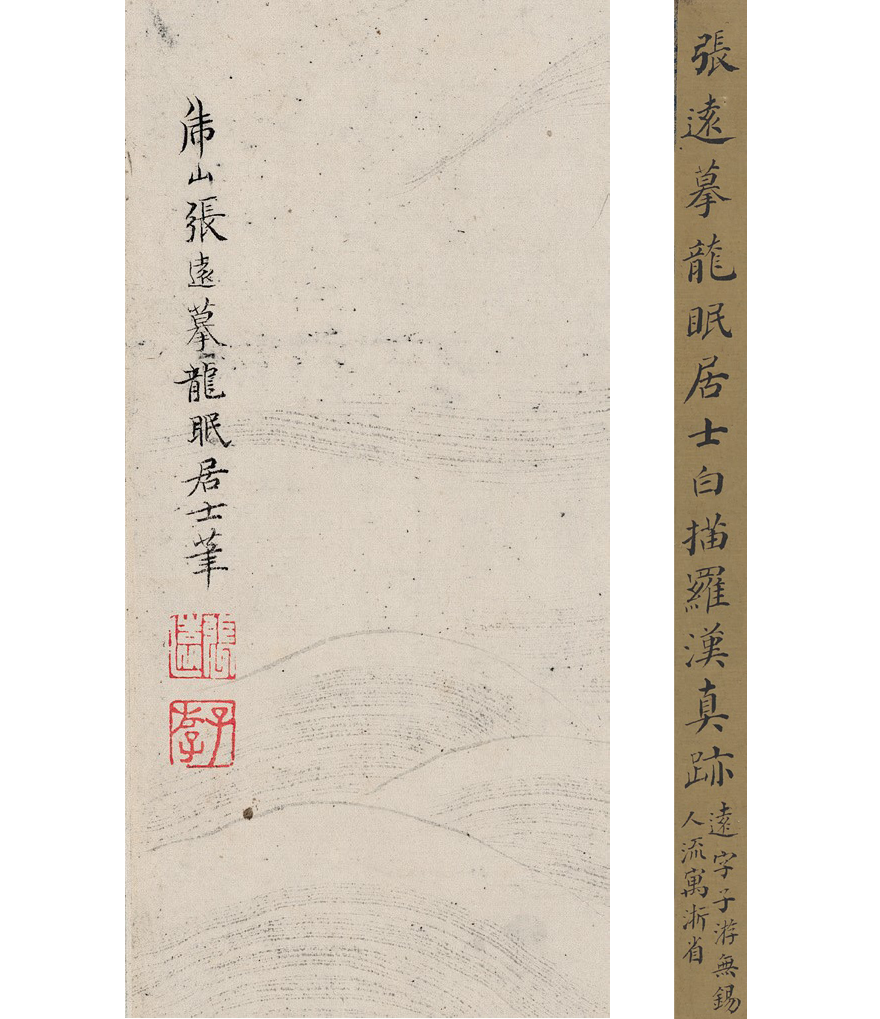 山張遠摹龍眠居士筆
張遠
子斿
張遠摹龍眠居士白描羅漢真跡
遠字子游無錫
人流寓浙省